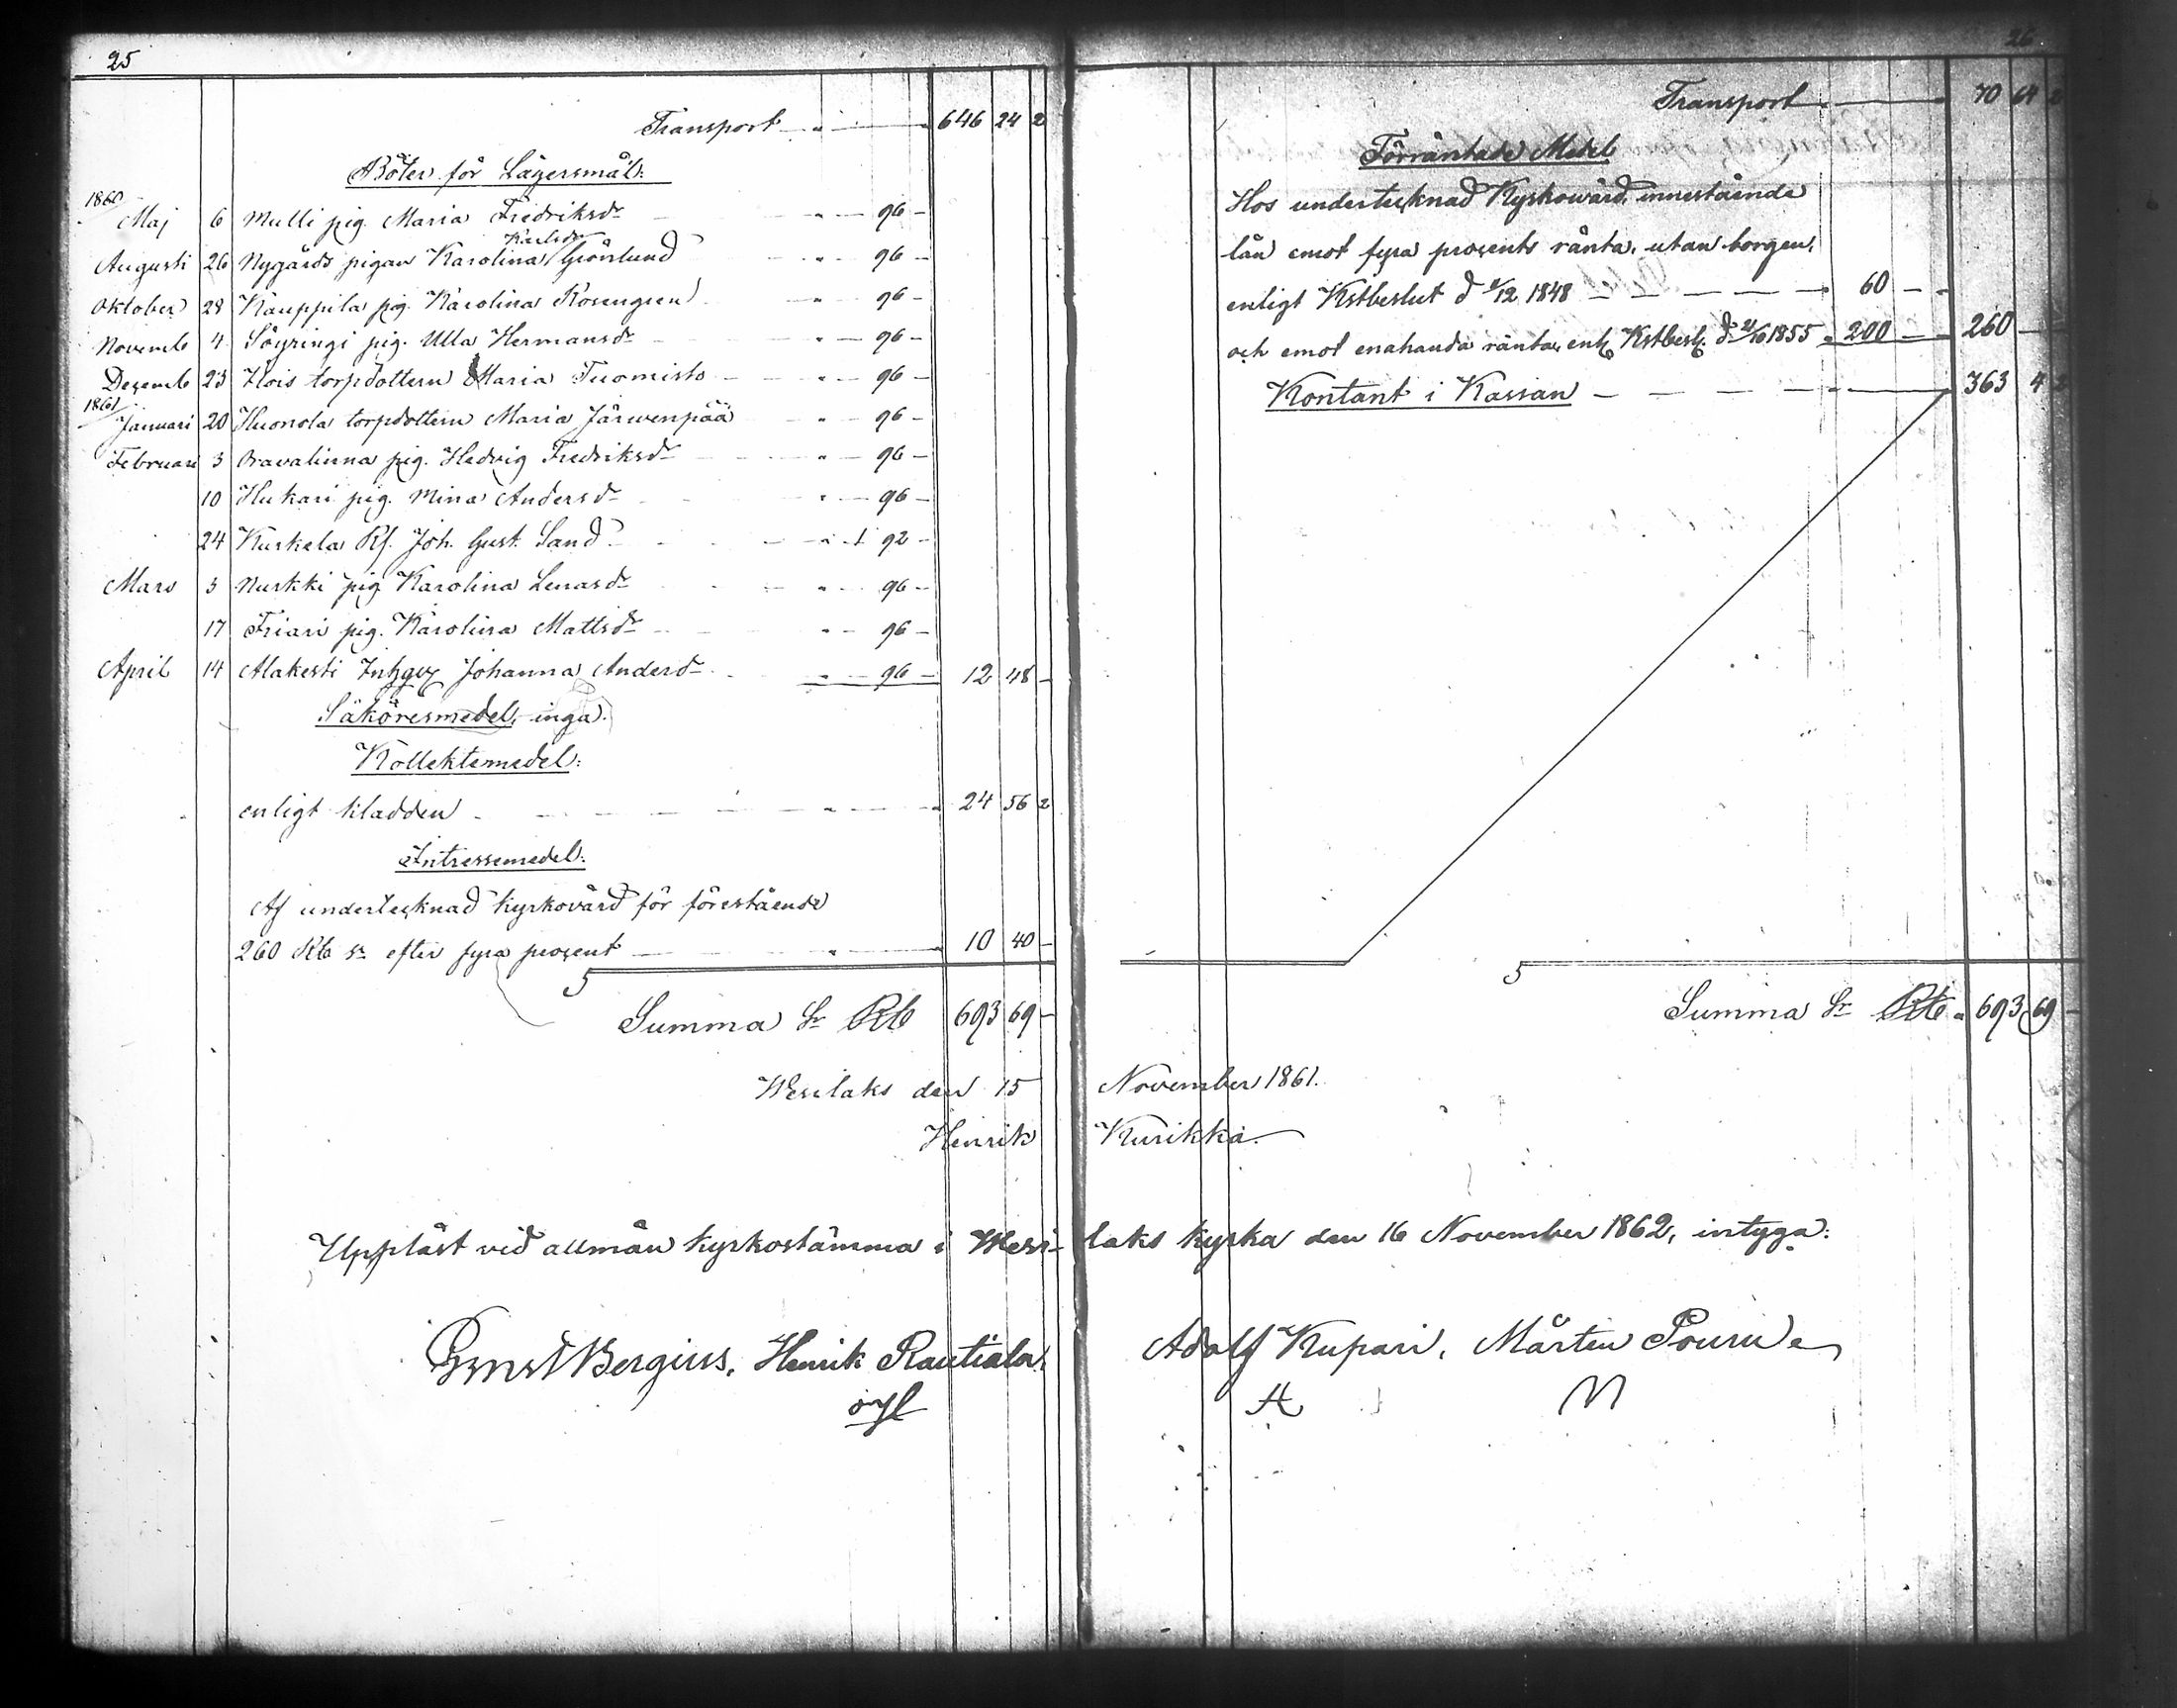 25
Transport 646 24 2
Böter för Lägersmål:
1860
Maj 6 Mulli pig. Maria Fredriksdr 96 -
Karlsdr
Augusti 26 Nygårds pigan Karolina Grönlund 96 -
Oktober 28 Kauppila pig. Karolina Rosengren 96 -
Novemb 4 Söyringi pig. Ulla Hermansdr 96 -
Dezemb 23 Hois torpdottern Maria Tuomisto 96 -
1861
Januari 20 Huonola torpdottern Maria Järwenpää 96 -
Februari 3 Oravalinna pig. Hedvig Fredriksdr 96 -
10 Hukari pig. Mina Andersdr 96 -
24 Kurkela Rf. Joh. Gust. Sand 1 92 -
Mars 3 Nurkki pig. Karolina Lenasdr 96 -
17 Friari pig. Karolina Mattsdr 96 -
April 14 Alakesti Johanna Andersdr 96 - 12 48 -
Saköresmedel, inga.
Kollektemedel:
enligt kladden 24 56 2
Intressemedel:
Af undertecknad kyrkovärd för förestående
260 Rb Sr efter fyra procent 10 40 -
Summa Sr Rb 693 69 -
26
Transport 70 64 2
Förräntade Medel
Hos undertecknad Kyrkowärd innestående
lån emot fyra procents ränta, utan borgen,
enligt Kstbeslut d 1/12 1848 60 -
och emot enahanda ränta, enl. Kstbesl. d 21/10 1855 200 - 260 -
Kontant i Kassan 363 4 2
Summa Sr Rb 693 69 -
Wesilaks den 15 November 1861.
Henrik Kurikka
Uppläst vid allmän kyrkostämma i Wesilaks kyrka den 16 November 1862, intyga:
Ernst Bergius. Henrik Rautiala, Adolf Kupari, Mårten Pouru